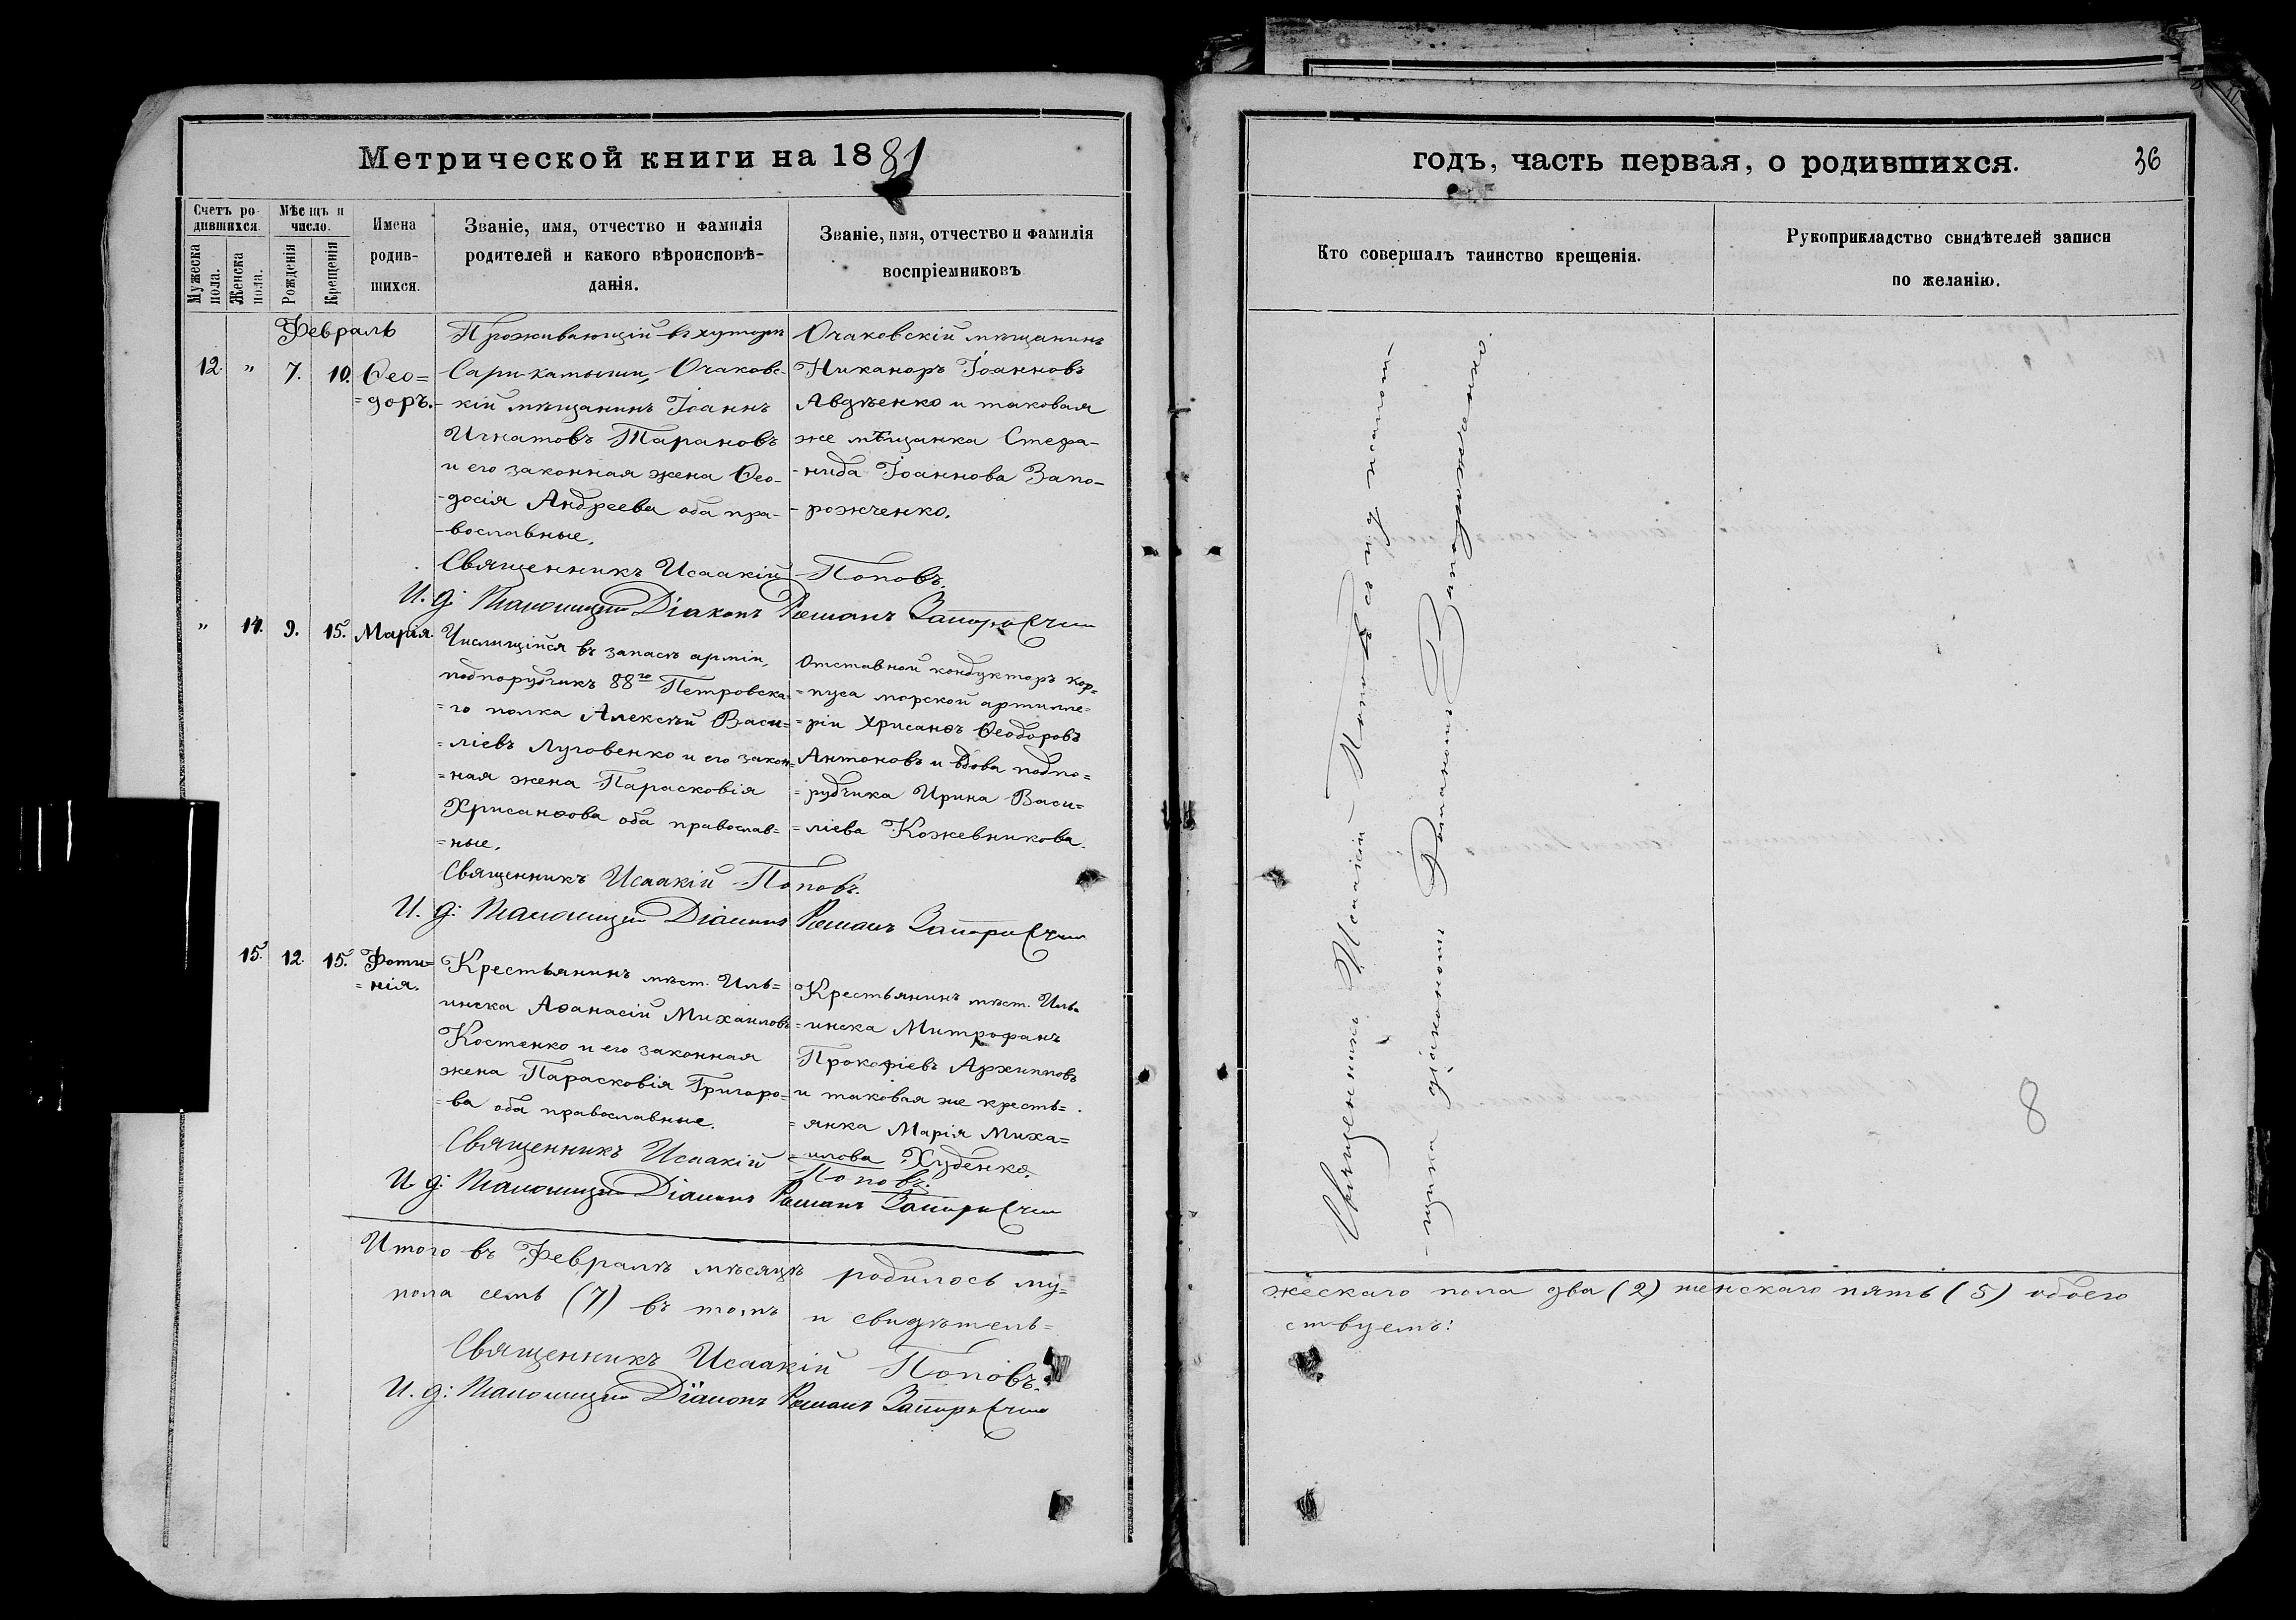 Метрической книги на 1881
годъ, часть первая, о родившихся.
36
Счетъ ро-
дившихся.
Мѣсяцъ и
число.
Мужеска
пола.
Женска
пола.
Рожденія
Крещенія
Имена
родив-
шихся.
Званіе, имя, отчество и фамилія
родителей и какого вѣроисповѣ-
данія.
Званіе, имя, отчество и фамилія
воспріемниковъ
Кто совершалъ таинство крещенія.
Рукоприкладство свидѣтелей записи
по желанію.
Февраль
12. " 7. 10. Ѳео=
=доръ.
Проживающій въ хуторѣ
Сари-камыши, Очаковс-
кій мѣщанинъ Іоаннъ
Игнатовъ Тарановъ
и его законная жена Ѳео-
-досія Андреева оба пра-
-вославные.
Очаковскій мѣщанинъ
Никаноръ Іоанновъ
Авдѣенко и таковая
же мѣщанка Стефа-
-нида Іоаннова Запо-
-рожченко.
Священникъ Исаакій Поповъ.
И. д: псаломщика Діаконъ Романъ
" 14. 9. 15. Марія.
Числящійся въ запасѣ арміи,
подпоручикъ 88го Петровска=
=го полка Алексѣй Васи=
=ліевъ Луговенко и его закон=
=ная жена Парасковія
Хрисанѳова оба православ=
=ные.
Отставной кондукторъ кор=
=пуса морской артилле=
=ріи Хрисанѳъ Ѳеодоровъ
Антоновъ и вдова подпо=
=ручика Ирина Васи=
=ліева Кожевникова.
Священникъ Исаакій Поповъ.
И. д: псаломщика Діаконъ Романъ
15. 12. 15. Фоти=
=нія.
Крестьянинъ мѣст. Иль=
инска Аѳанасій Михаиловъ
Костенко и его законная
жена Парасковія Григоро=
=ва оба православные.
Крестьянинъ мѣст. Иль=
=инска Митрофанъ
Прокофіевъ Архиповъ
и таковая же кресть=
=янка Марія Миха=
=илова Худенко.
Священникъ Исаакій Поповъ.
И. д: псаломщика Діаконъ Романъ
Итого въ Февралѣ мѣсяцѣ родилось му=
жескаго пола два (2) женскаго пять (5) обоего
пола семь (7) въ томъ и свидѣтель=
ствуемъ:
Священникъ Исаакій Поповъ.
И. д: псаломщика Діаконъ Романъ
Священникъ Исаакій Поповъ съ и. д. псалом-
-щика діакономъ Романомъ Запорожченко.
8